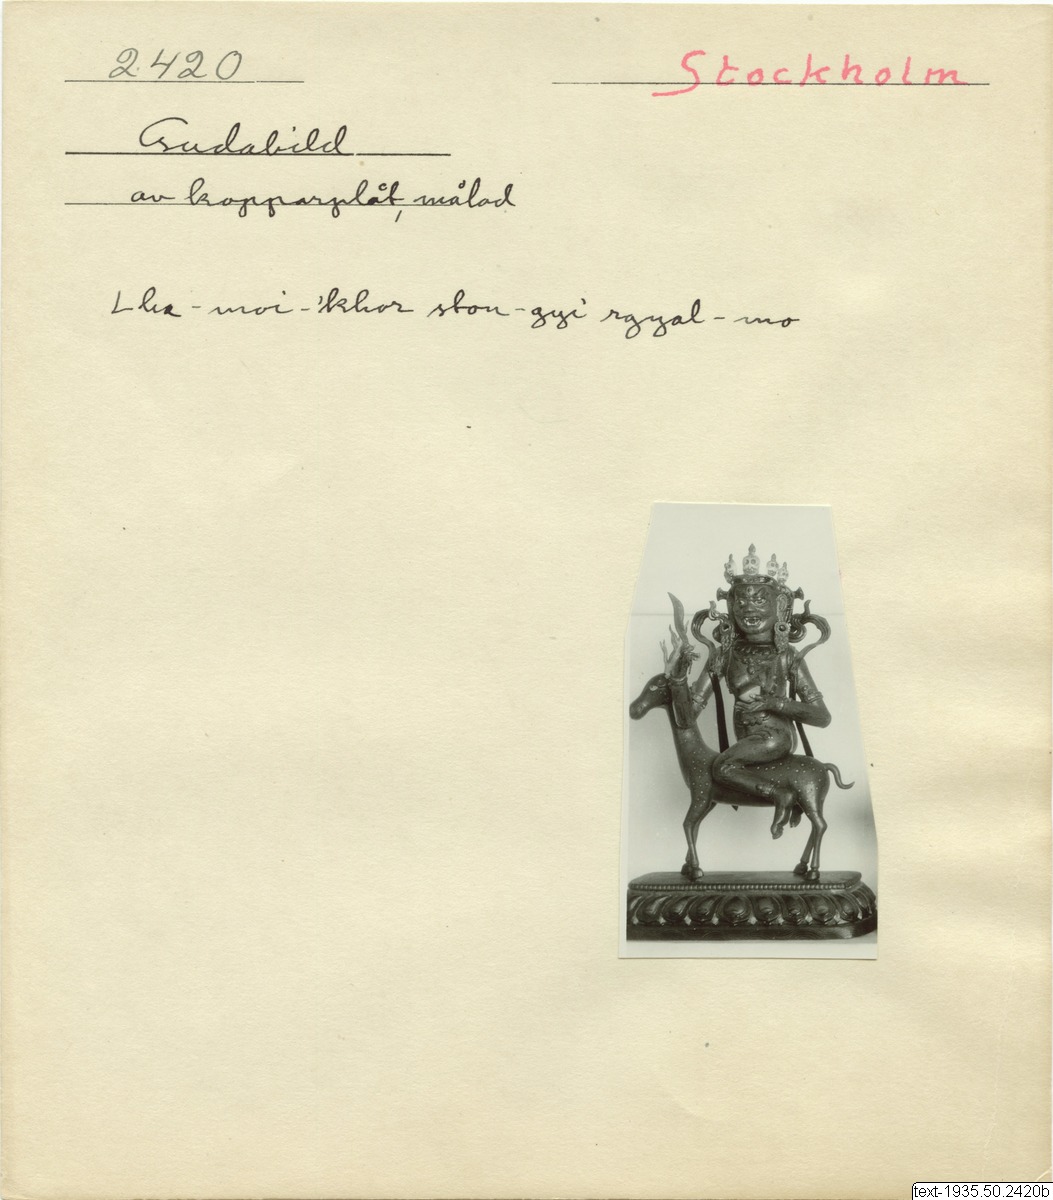 2420
Stockholm
Gudabild
av kopparplåt, målad
Lha-moi-'khor ston-gyi rgyal-mo
text-1935.50.2420b